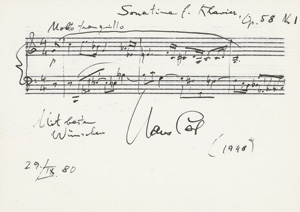 Sonatine f. Klavier Op. 58 No. 1
Molto tranquillo
p
Mit besten
Wünschen
Hans
(1948)
29. IX. 80